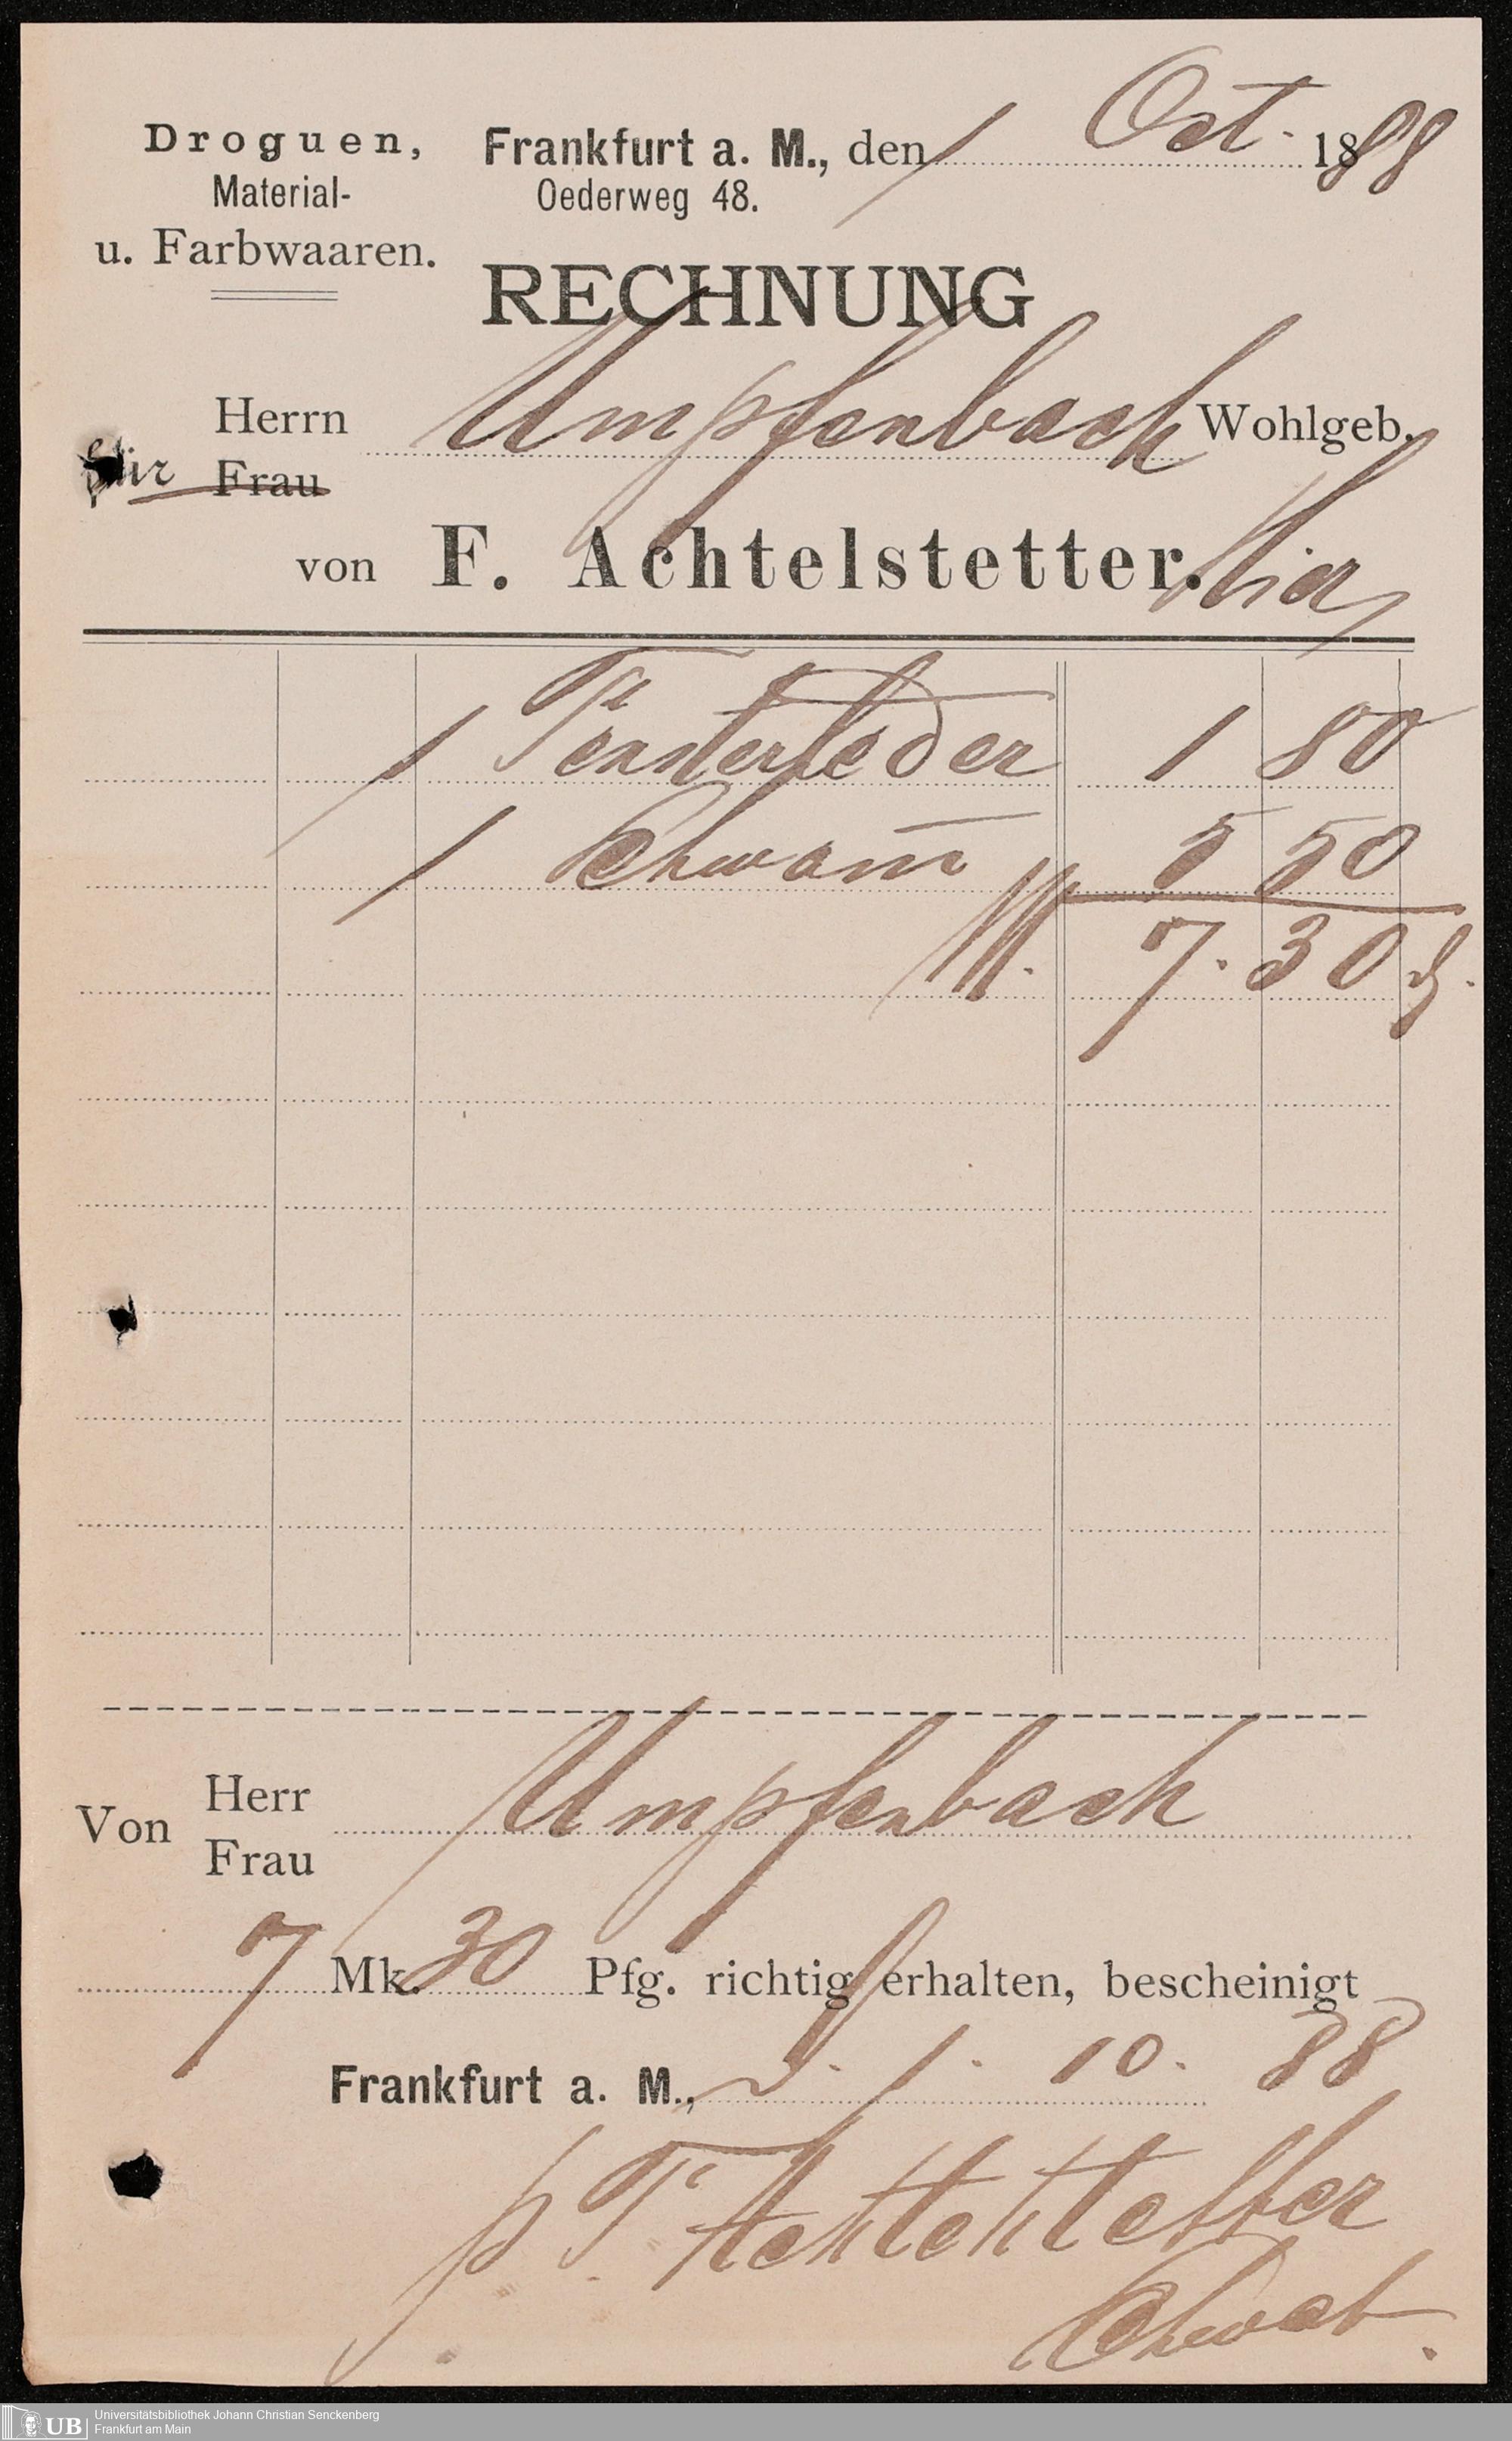 Droguen,
Material-
u. Farbwaaren.
Frankfurt a. M., den 1 Oct. 1888
Oederweg 48.
RECHNUNG
Herrn Umpfenbach Wohlgeb.
für Frau
von F. Achtelstetter. Hier
1 Fensterleder 1 80
1 Schwam̅ 5 50
M. 7. 30 ₰.
Von Herr Umpfenbach
Frau
7 Mk. 30 Pfg. richtig erhalten, bescheinigt
Frankfurt a. M., d. 1. 10. 88
p F. Achtelstetter
UB Universitätsbibliothek Johann Christian Senckenberg
Frankfurt am Main